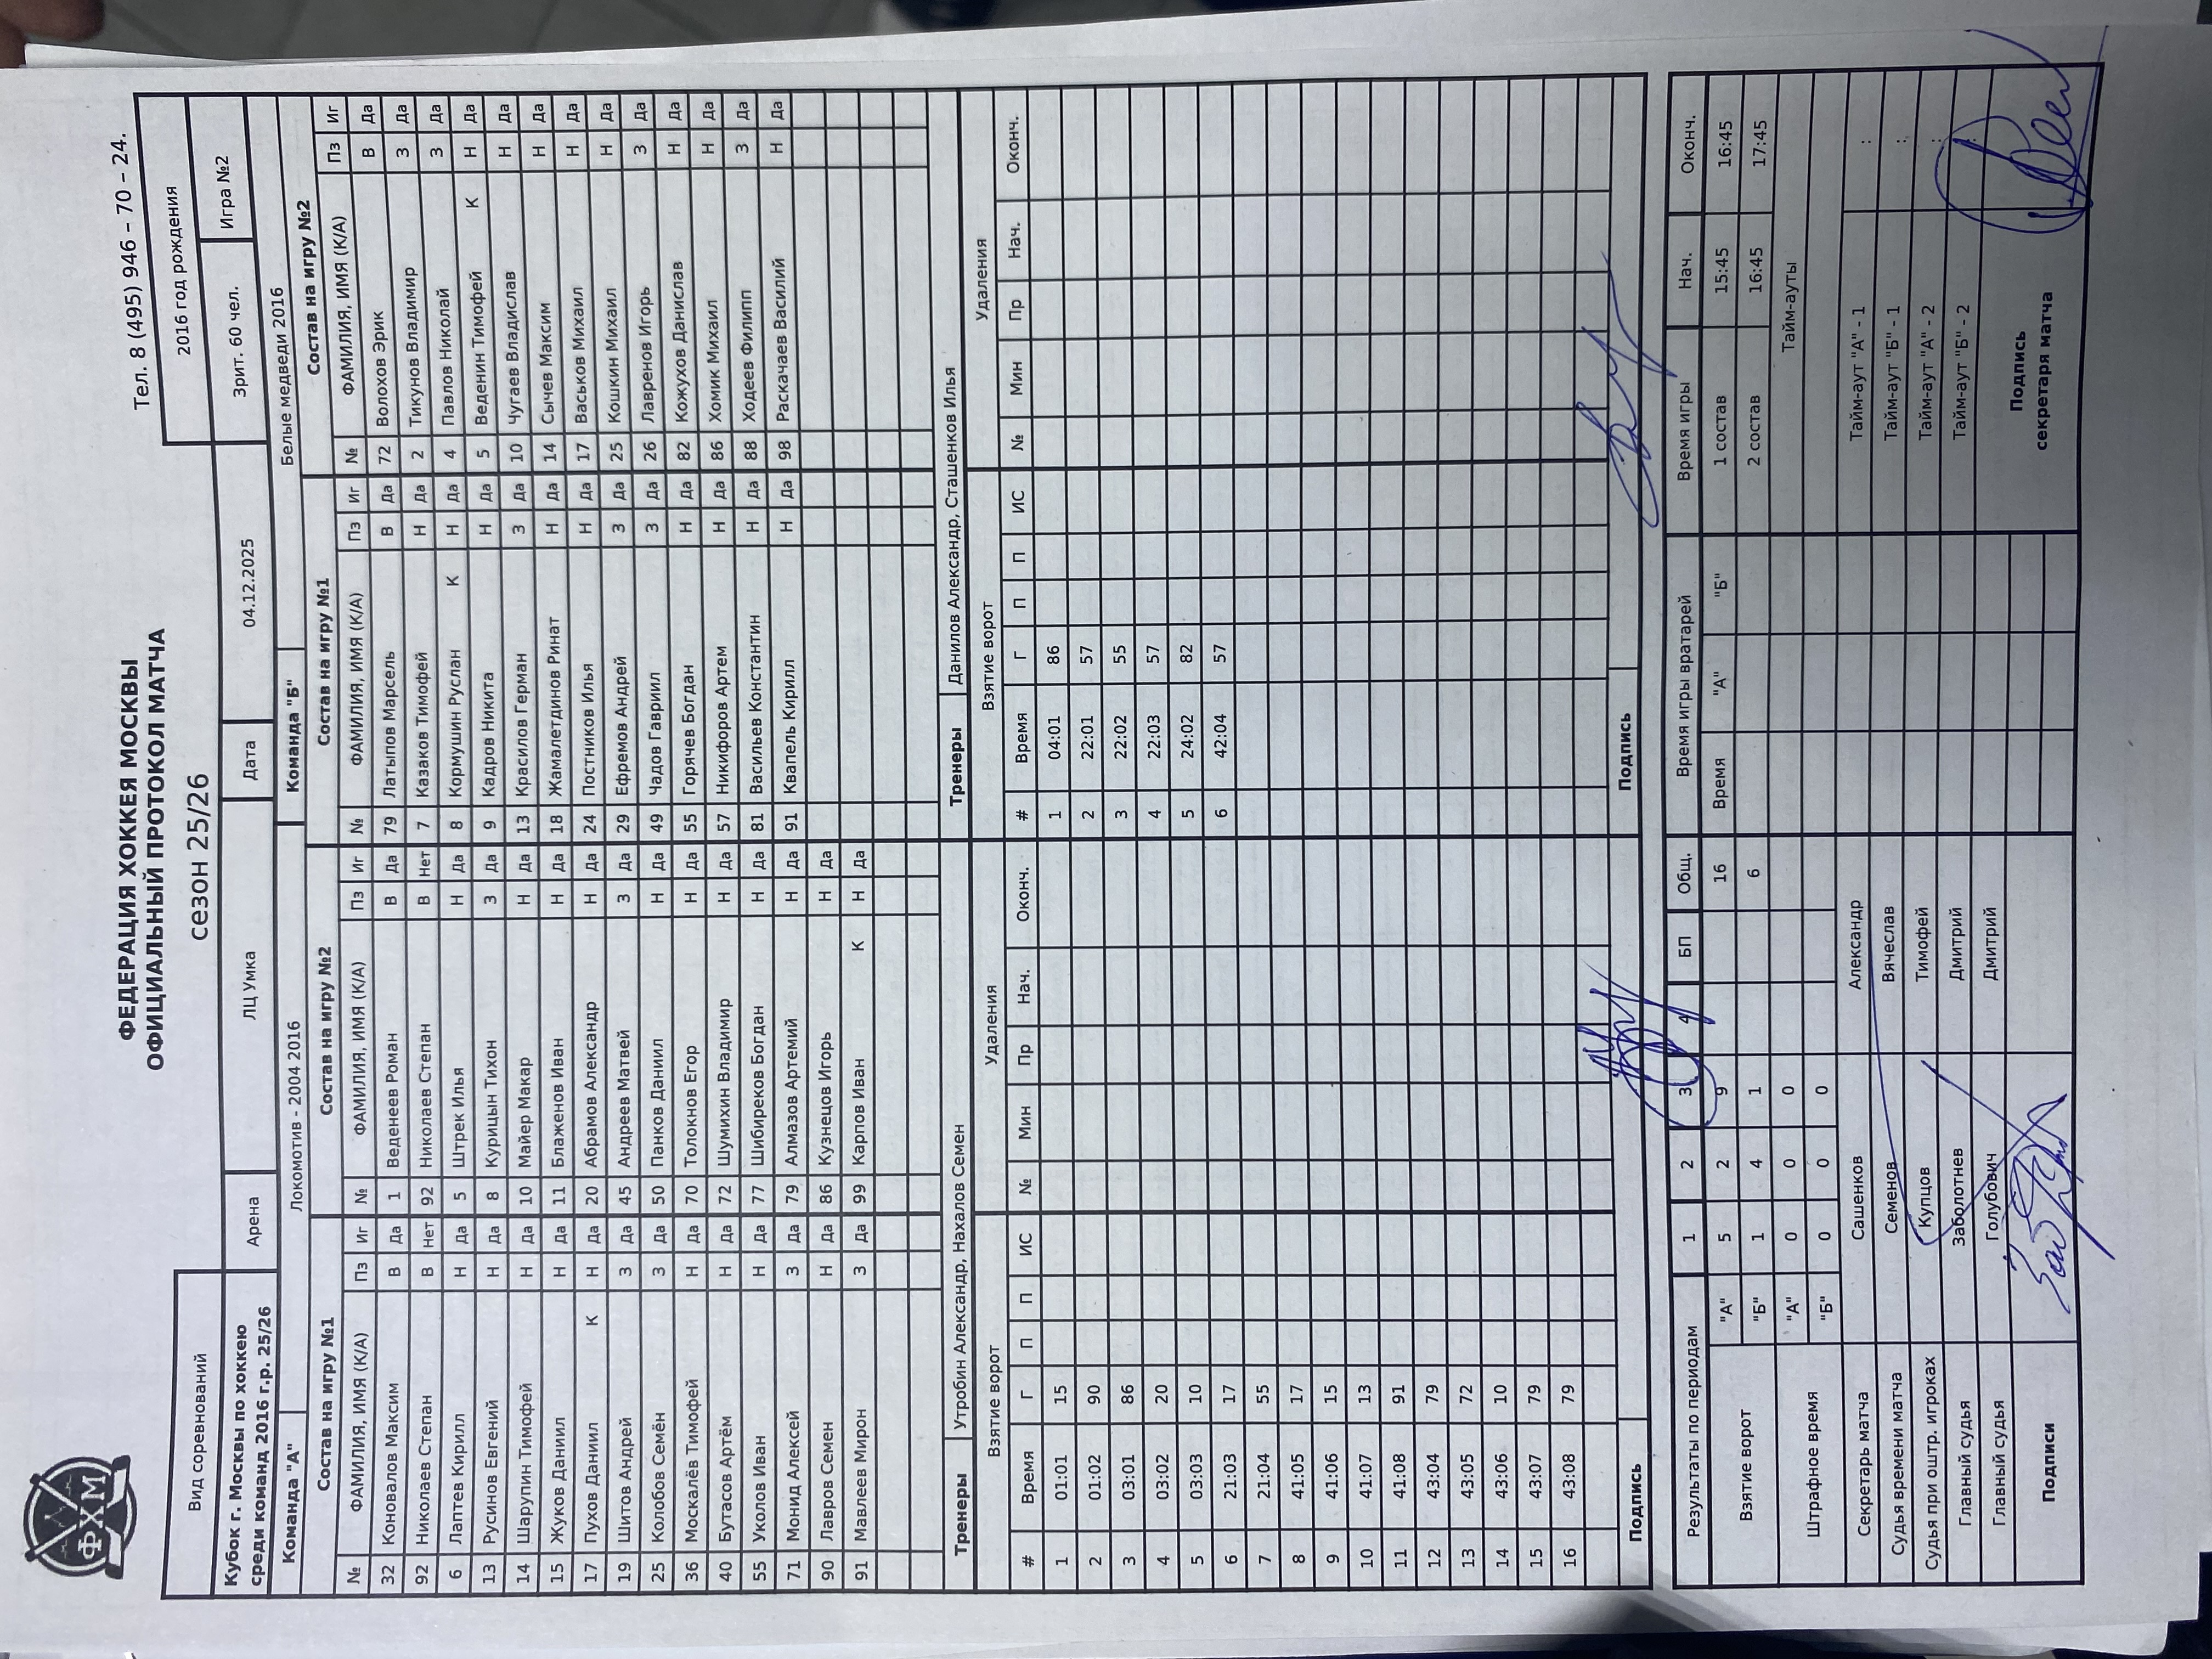 ФХМ
ФЕДЕРАЦИЯ ХОККЕЯ МОСКВЫ
ОФИЦИАЛЬНЫЙ ПРОТОКОЛ МАТЧА
сезон 25/26
Тел. 8 (495) 946 – 70 – 24.
Вид соревнований 2016 год рождения
Кубок г. Москвы по хоккею
среди команд 2016 г.р. 25/26
Арена ЛЦ Умка Дата 04.12.2025 Зрит. 60 чел. Игра №2
Команда "А" Локомотив - 2004 2016 Команда "Б" Белые медведи 2016
Состав на игру №1 Состав на игру №2 Состав на игру №1 Состав на игру №2
№ ФАМИЛИЯ, ИМЯ (К/А) Пз Иг № ФАМИЛИЯ, ИМЯ (К/А) Пз Иг № ФАМИЛИЯ, ИМЯ (К/А) Пз Иг № ФАМИЛИЯ, ИМЯ (К/А) Пз Иг
32 Коновалов Максим В Да 1 Веденеев Роман В Да 79 Латыпов Марсель В Да 72 Волохов Эрик В Да
92 Николаев Степан В Нет 92 Николаев Степан В Нет 7 Казаков Тимофей Н Да 2 Тикунов Владимир З Да
6 Лаптев Кирилл Н Да 5 Штрек Илья Н Да 8 Кормушин Руслан К Н Да 4 Павлов Николай З Да
13 Русинов Евгений Н Да 8 Курицын Тихон З Да 9 Кадров Никита Н Да 5 Веденин Тимофей К Н Да
14 Шарупин Тимофей Н Да 10 Майер Макар Н Да 13 Красилов Герман З Да 10 Чугаев Владислав Н Да
15 Жуков Даниил Н Да 11 Блаженов Иван Н Да 18 Жамалетдинов Ринат Н Да 14 Сычев Максим Н Да
17 Пухов Даниил К Н Да 20 Абрамов Александр Н Да 24 Постников Илья Н Да 17 Васьков Михаил Н Да
19 Шитов Андрей З Да 45 Андреев Матвей З Да 29 Ефремов Андрей З Да 25 Кошкин Михаил Н Да
25 Колобов Семён З Да 50 Панков Даниил Н Да 49 Чадов Гавриил З Да 26 Лавренов Игорь З Да
36 Москалёв Тимофей Н Да 70 Толокнов Егор Н Да 55 Горячев Богдан Н Да 82 Кожухов Данислав Н Да
40 Бутасов Артём Н Да 72 Шумихин Владимир Н Да 57 Никифоров Артем Н Да 86 Хомик Михаил Н Да
55 Уколов Иван Н Да 77 Шибиреков Богдан Н Да 81 Васильев Константин Н Да 88 Ходеев Филипп З Да
71 Монид Алексей З Да 79 Алмазов Артемий Н Да 91 Квапель Кирилл Н Да 98 Раскачаев Василий Н Да
90 Лавров Семен Н Да 86 Кузнецов Игорь Н Да
91 Мавлеев Мирон З Да 99 Карпов Иван К Н Да
Тренеры Утробин Александр, Нахалов Семен Тренеры Данилов Александр, Сташенков Илья
Взятие ворот Удаления Взятие ворот Удаления
# Время Г П П ИС № Мин Пр Нач. Оконч. # Время Г П П ИС № Мин Пр Нач. Оконч.
1 01:01 15 1 04:01 86
2 01:02 90 2 22:01 57
3 03:01 86 3 22:02 55
4 03:02 20 4 22:03 57
5 03:03 10 5 24:02 82
6 21:03 17 6 42:04 57
7 21:04 55
8 41:05 17
9 41:06 15
10 41:07 13
11 41:08 91
12 43:04 79
13 43:05 72
14 43:06 10
15 43:07 79
16 43:08 79
Подпись Подпись
Результаты по периодам 1 2 3 4 БП Общ. Время игры вратарей Время игры Нач. Оконч.
Взятие ворот "А" 5 2 9 16 Время "А" "Б" 1 состав 15:45 16:45
"Б" 1 4 1 6 2 состав 16:45 17:45
Штрафное время "А" 0 0 0 Тайм-ауты
"Б" 0 0 0
Секретарь матча Сашенков Александр Тайм-аут "А" - 1 :
Судья времени матча Семенов Вячеслав Тайм-аут "Б" - 1 :
Судья при оштр. игроках Купцов Тимофей Тайм-аут "А" - 2 :
Главный судья Заболотнев Дмитрий Тайм-аут "Б" - 2 :
Главный судья Голубович Дмитрий
Подписи Подпись
секретаря матча